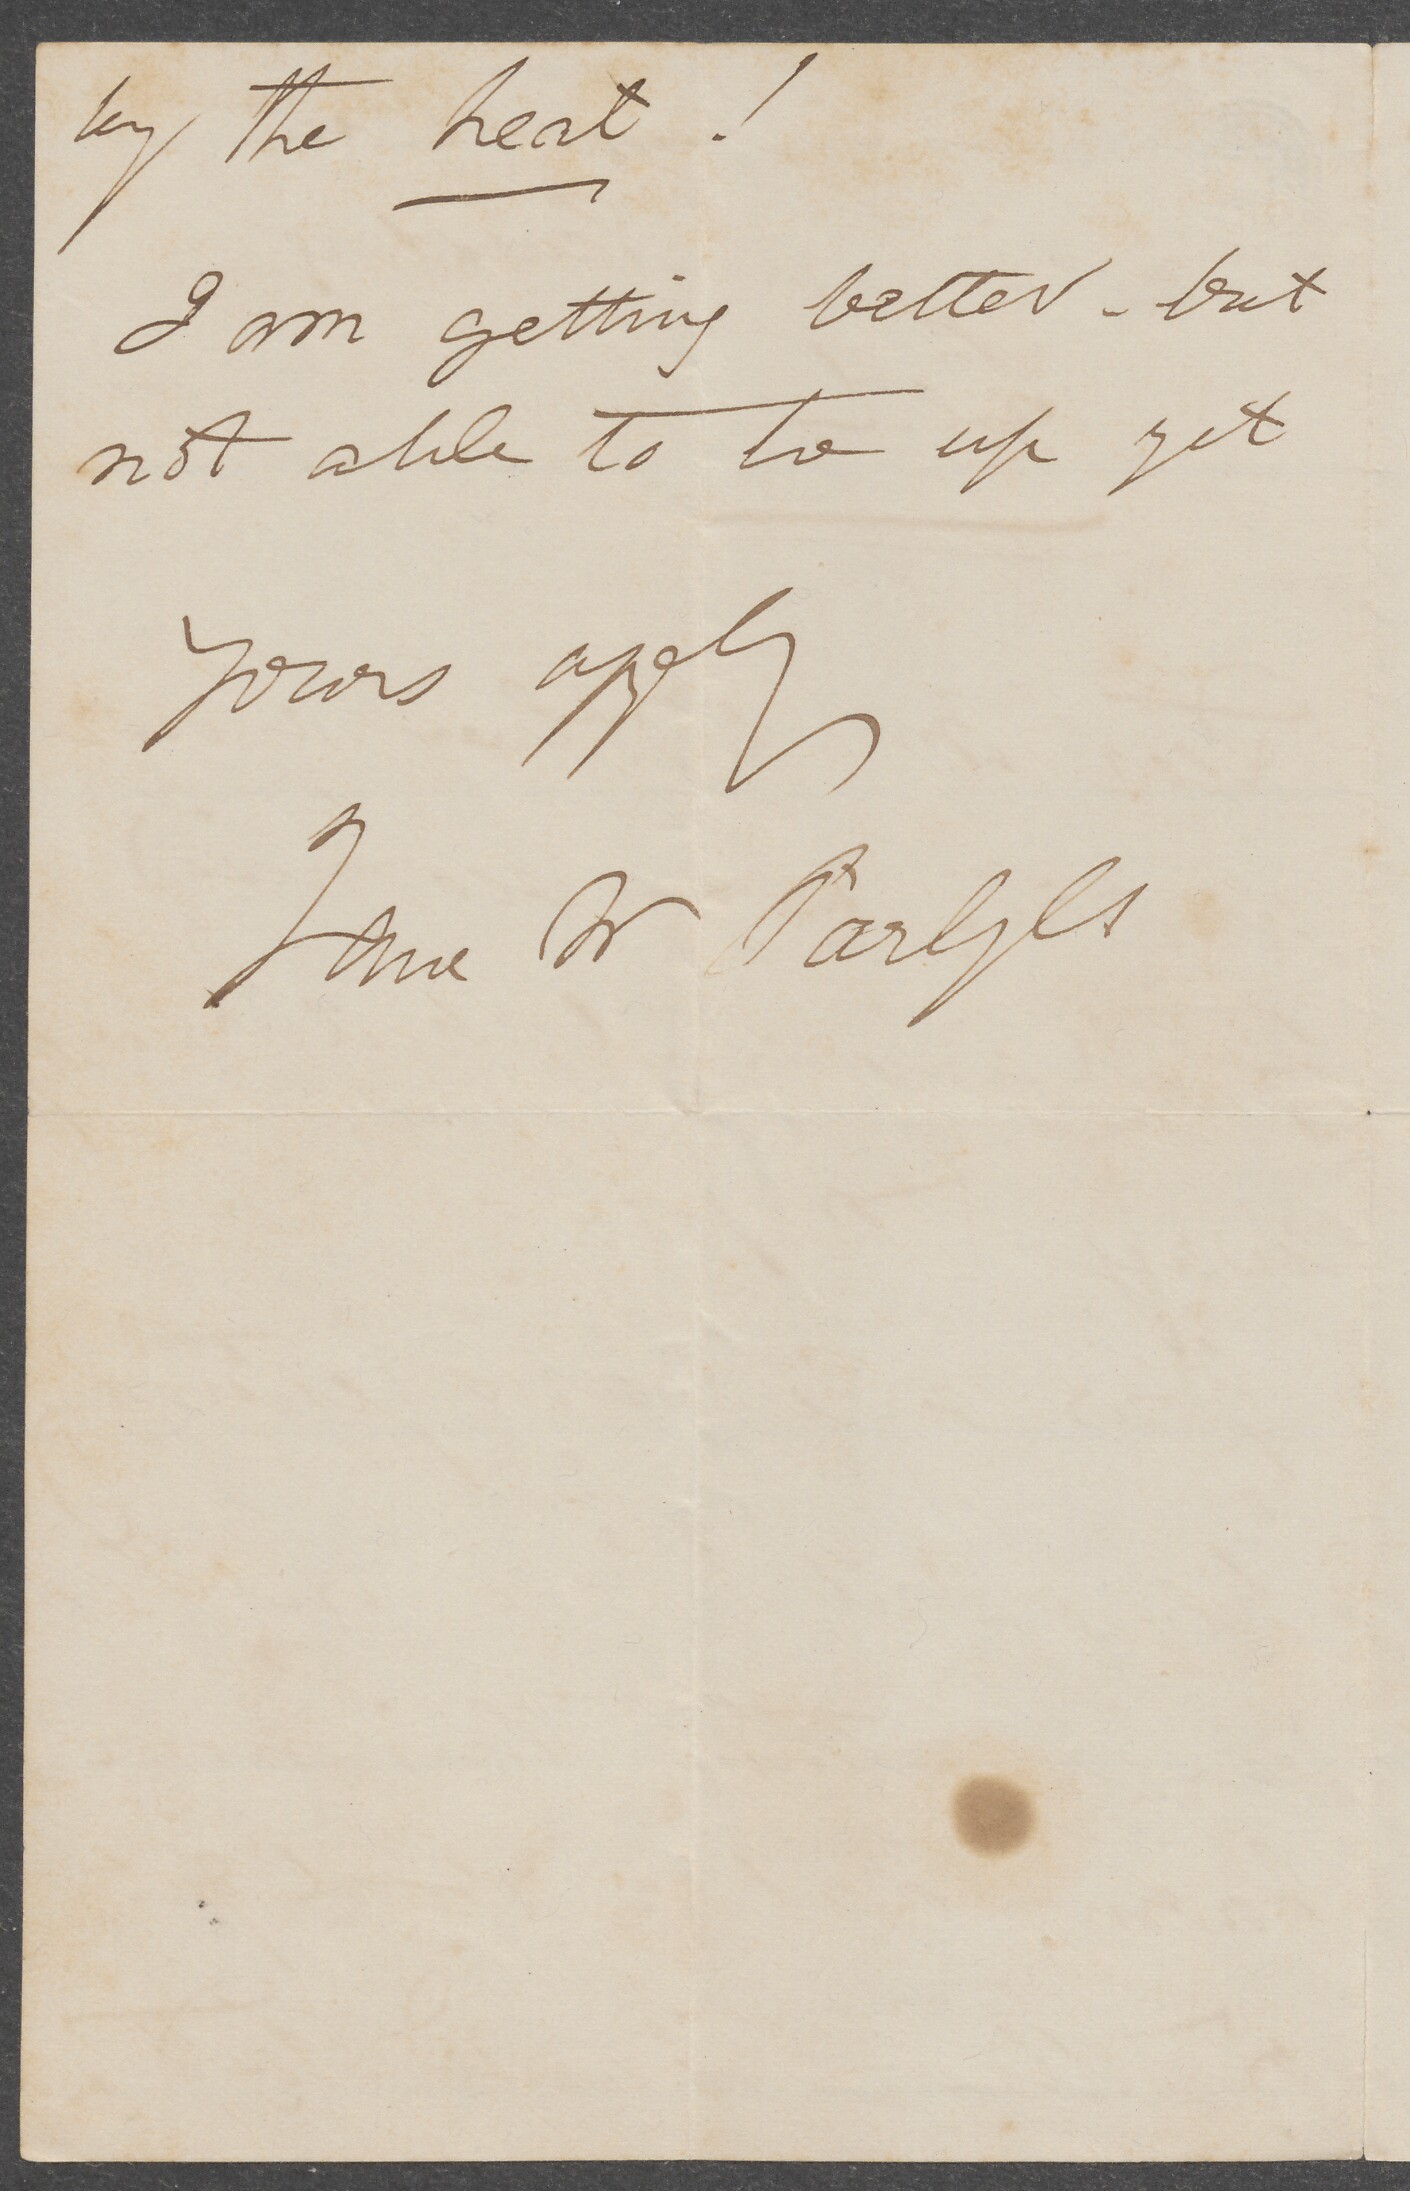 by the heat!
I am getting better - but
not able to be up yet
Yours affly
Jane W Carlyle